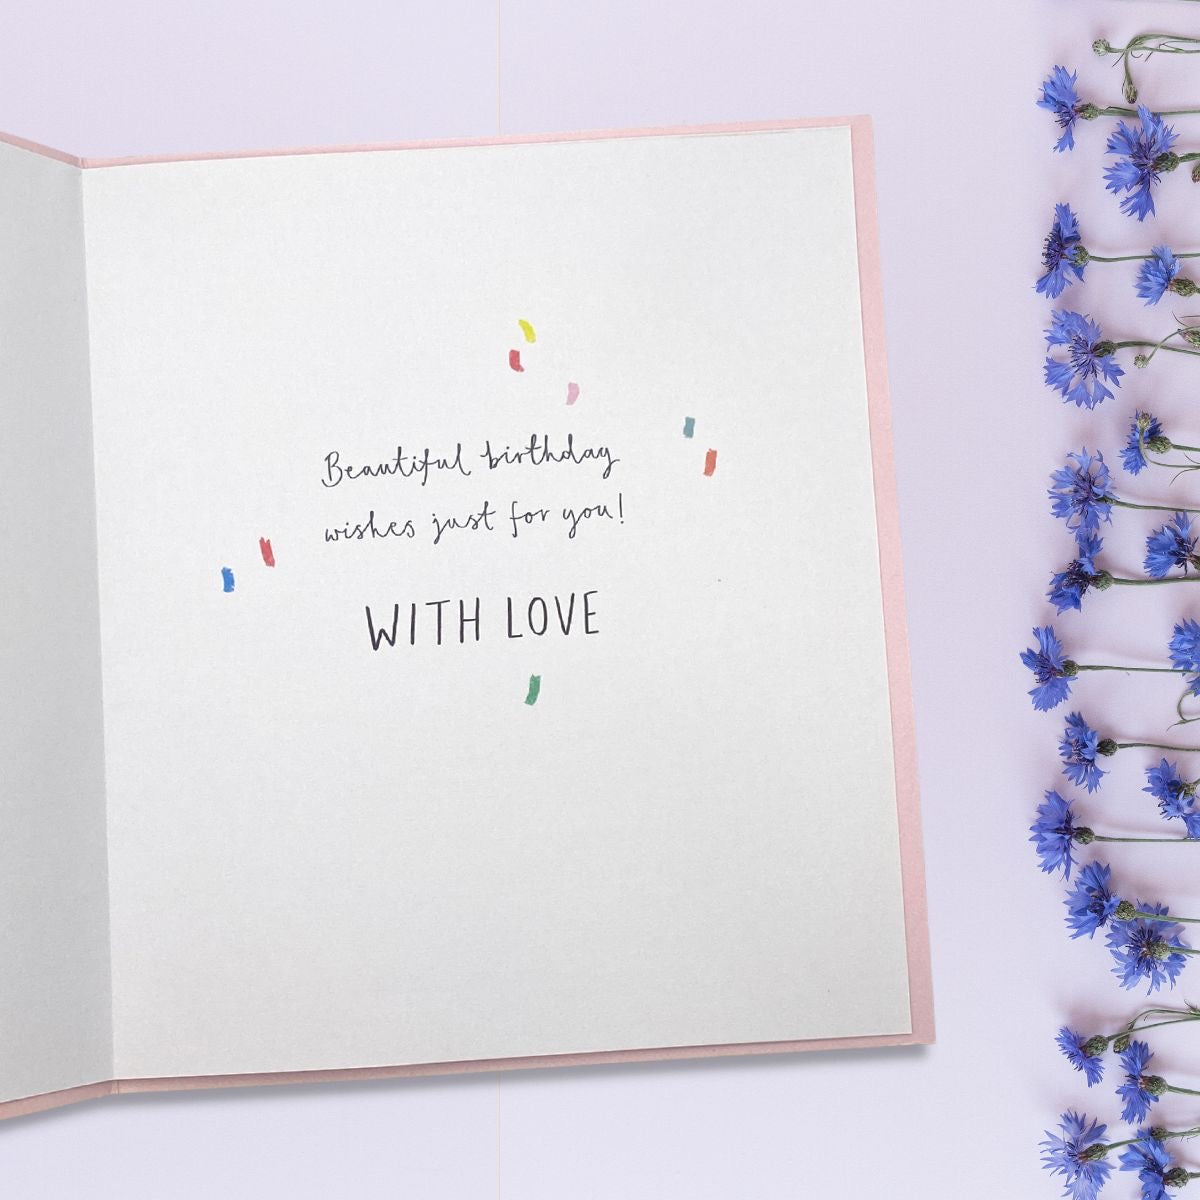 Beautiful birthday
wishes just for you!
WITH LOVE